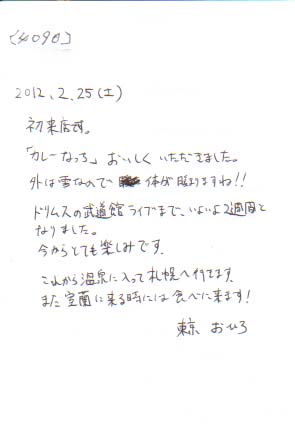 [4090]
2012.2.25(土)
初来店です。
「カレーなっち」おいしくいただきました。
外は雪なので体が暖まりますね!!
ドリムスの武道館ライブまで、いよいよ2週間と
なりました。
今からとても楽しみです。
これから温泉に入って札幌へ行てます。
また室蘭に来る時には食べに来ます!
東京 おひろ